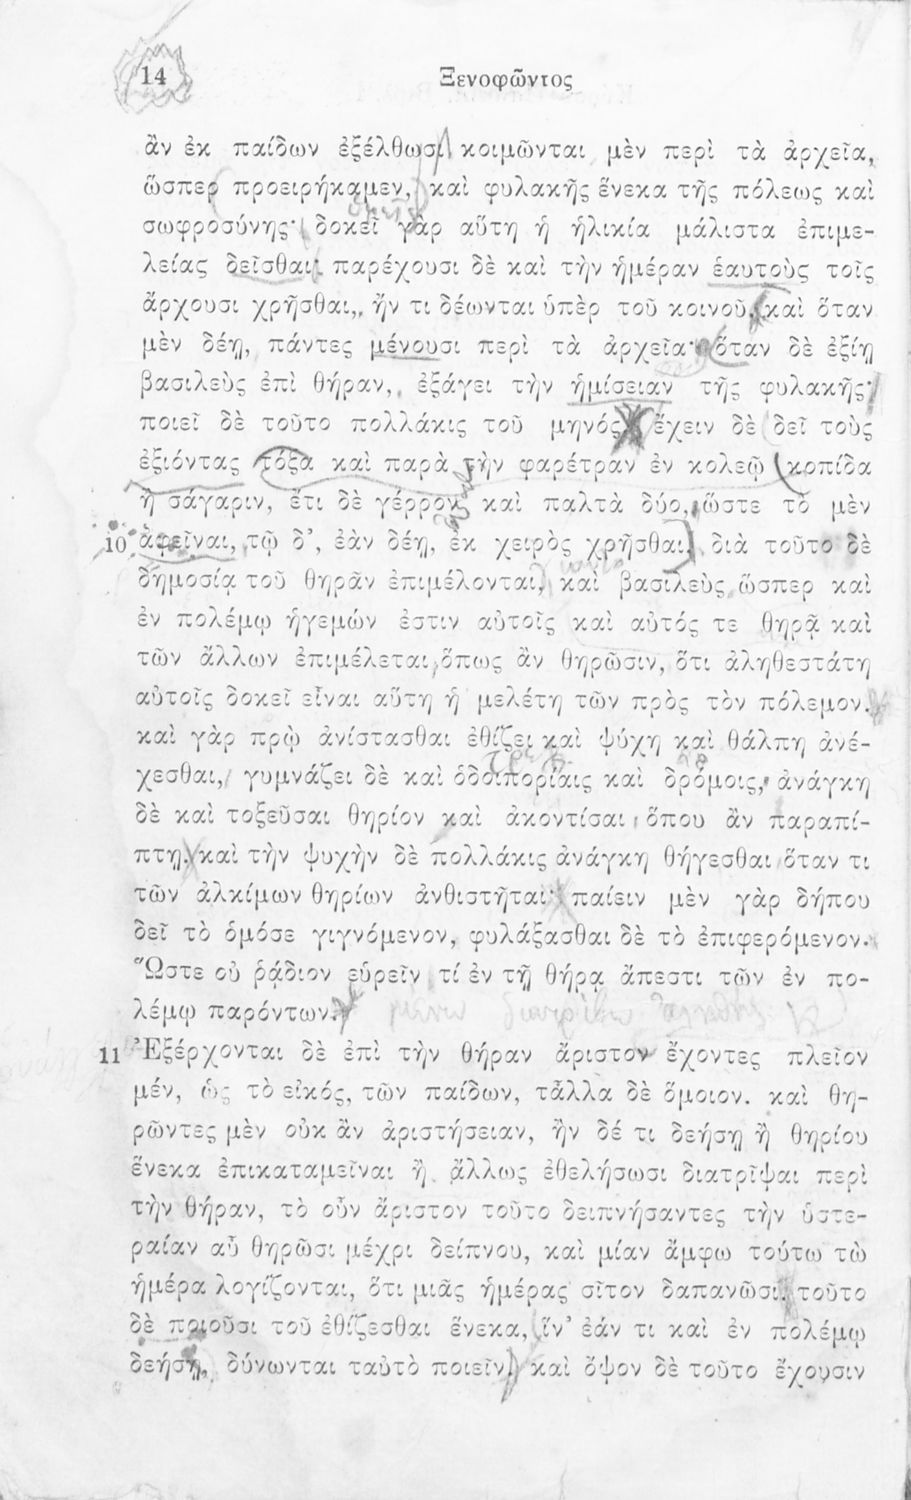 14
Ξενοφῶντος
ἂν ἐκ παίδων ἐξέλθωσι, κοιμῶνται μὲν περὶ τὰ ἀρχεῖα,
ὥσπερ προειρήκαμεν, καὶ φυλακῆς ἕνεκα τῆς πόλεως καὶ
σωφροσύνης· δοκεῖ γὰρ αὕτη ἡ ἡλικία μάλιστα ἐπιμε-
λείας δεῖσθαι· παρέχουσι δὲ καὶ τὴν ἡμέραν ἑαυτοὺς τοῖς
ἄρχουσι χρῆσθαι, ἤν τι δέωνται ὑπὲρ τοῦ κοινοῦ. καὶ ὅταν
μὲν δέῃ, πάντες μένουσι περὶ τὰ ἀρχεῖα· ὅταν δὲ ἐξίῃ
βασιλεὺς ἐπὶ θήραν, ἐξάγει τὴν ἡμίσειαν τῆς φυλακῆς·
ποιεῖ δὲ τοῦτο πολλάκις τοῦ μηνός. ἔχειν δὲ δεῖ τοὺς
ἐξιόντας τόξα καὶ παρὰ τὴν φαρέτραν ἐν κολεῷ κοπίδα
ἢ σάγαριν, ἔτι δὲ γέρρον καὶ παλτὰ δύο, ὥστε τὸ μὲν
10 ἀφεῖναι, τῷ δ’, ἐὰν δέῃ, ἐκ χειρὸς χρῆσθαι. διὰ τοῦτο δὲ
δημοσίᾳ τοῦ θηρᾶν ἐπιμέλονται, καὶ βασιλεὺς ὥσπερ καὶ
ἐν πολέμῳ ἡγεμών ἐστιν αὐτοῖς καὶ αὐτός τε θηρᾷ καὶ
τῶν ἄλλων ἐπιμέλεται ὅπως ἂν θηρῶσιν, ὅτι ἀληθεστάτη
αὐτοῖς δοκεῖ εἶναι αὕτη ἡ μελέτη τῶν πρὸς τὸν πόλεμον.
καὶ γὰρ πρῲ ἀνίστασθαι ἐθίζει καὶ ψύχη καὶ θάλπη ἀνέ-
χεσθαι, γυμνάζει δὲ καὶ ὁδοιπορίαις καὶ δρόμοις, ἀνάγκη
δὲ καὶ τοξεῦσαι θηρίον καὶ ἀκοντίσαι ὅπου ἂν παραπί-
πτῃ. καὶ τὴν ψυχὴν δὲ πολλάκις ἀνάγκη θήγεσθαι ὅταν τι
τῶν ἀλκίμων θηρίων ἀνθιστῆται· παίειν μὲν γὰρ δήπου
δεῖ τὸ ὁμόσε γιγνόμενον, φυλάξασθαι δὲ τὸ ἐπιφερόμενον.
Ὥστε οὐ ῥᾴδιον εὑρεῖν τί ἐν τῇ θήρᾳ ἄπεστι τῶν ἐν πο-
λέμῳ παρόντων.
11 Ἐξέρχονται δὲ ἐπὶ τὴν θήραν ἄριστον ἔχοντες πλεῖον
μέν, ὡς τὸ εἰκός, τῶν παίδων, τἆλλα δὲ ὅμοιον. καὶ θη-
ρῶντες μὲν οὐκ ἂν ἀριστήσειαν, ἢν δέ τι δεήσῃ ἢ θηρίου
ἕνεκα ἐπικαταμεῖναι ἢ ἄλλως ἐθελήσωσι διατρῖψαι περὶ
τὴν θήραν, τὸ οὖν ἄριστον τοῦτο δειπνήσαντες τὴν ὑστε-
ραίαν αὖ θηρῶσι μέχρι δείπνου, καὶ μίαν ἄμφω τούτω τὼ
ἡμέρα λογίζονται, ὅτι μιᾶς ἡμέρας σῖτον δαπανῶσι. τοῦτο
δὲ ποιοῦσι τοῦ ἐθίζεσθαι ἕνεκα, ἵν’ ἐάν τι καὶ ἐν πολέμῳ
δεήσῃ, δύνωνται ταὐτὸ ποιεῖν. καὶ ὄψον δὲ τοῦτο ἔχουσιν